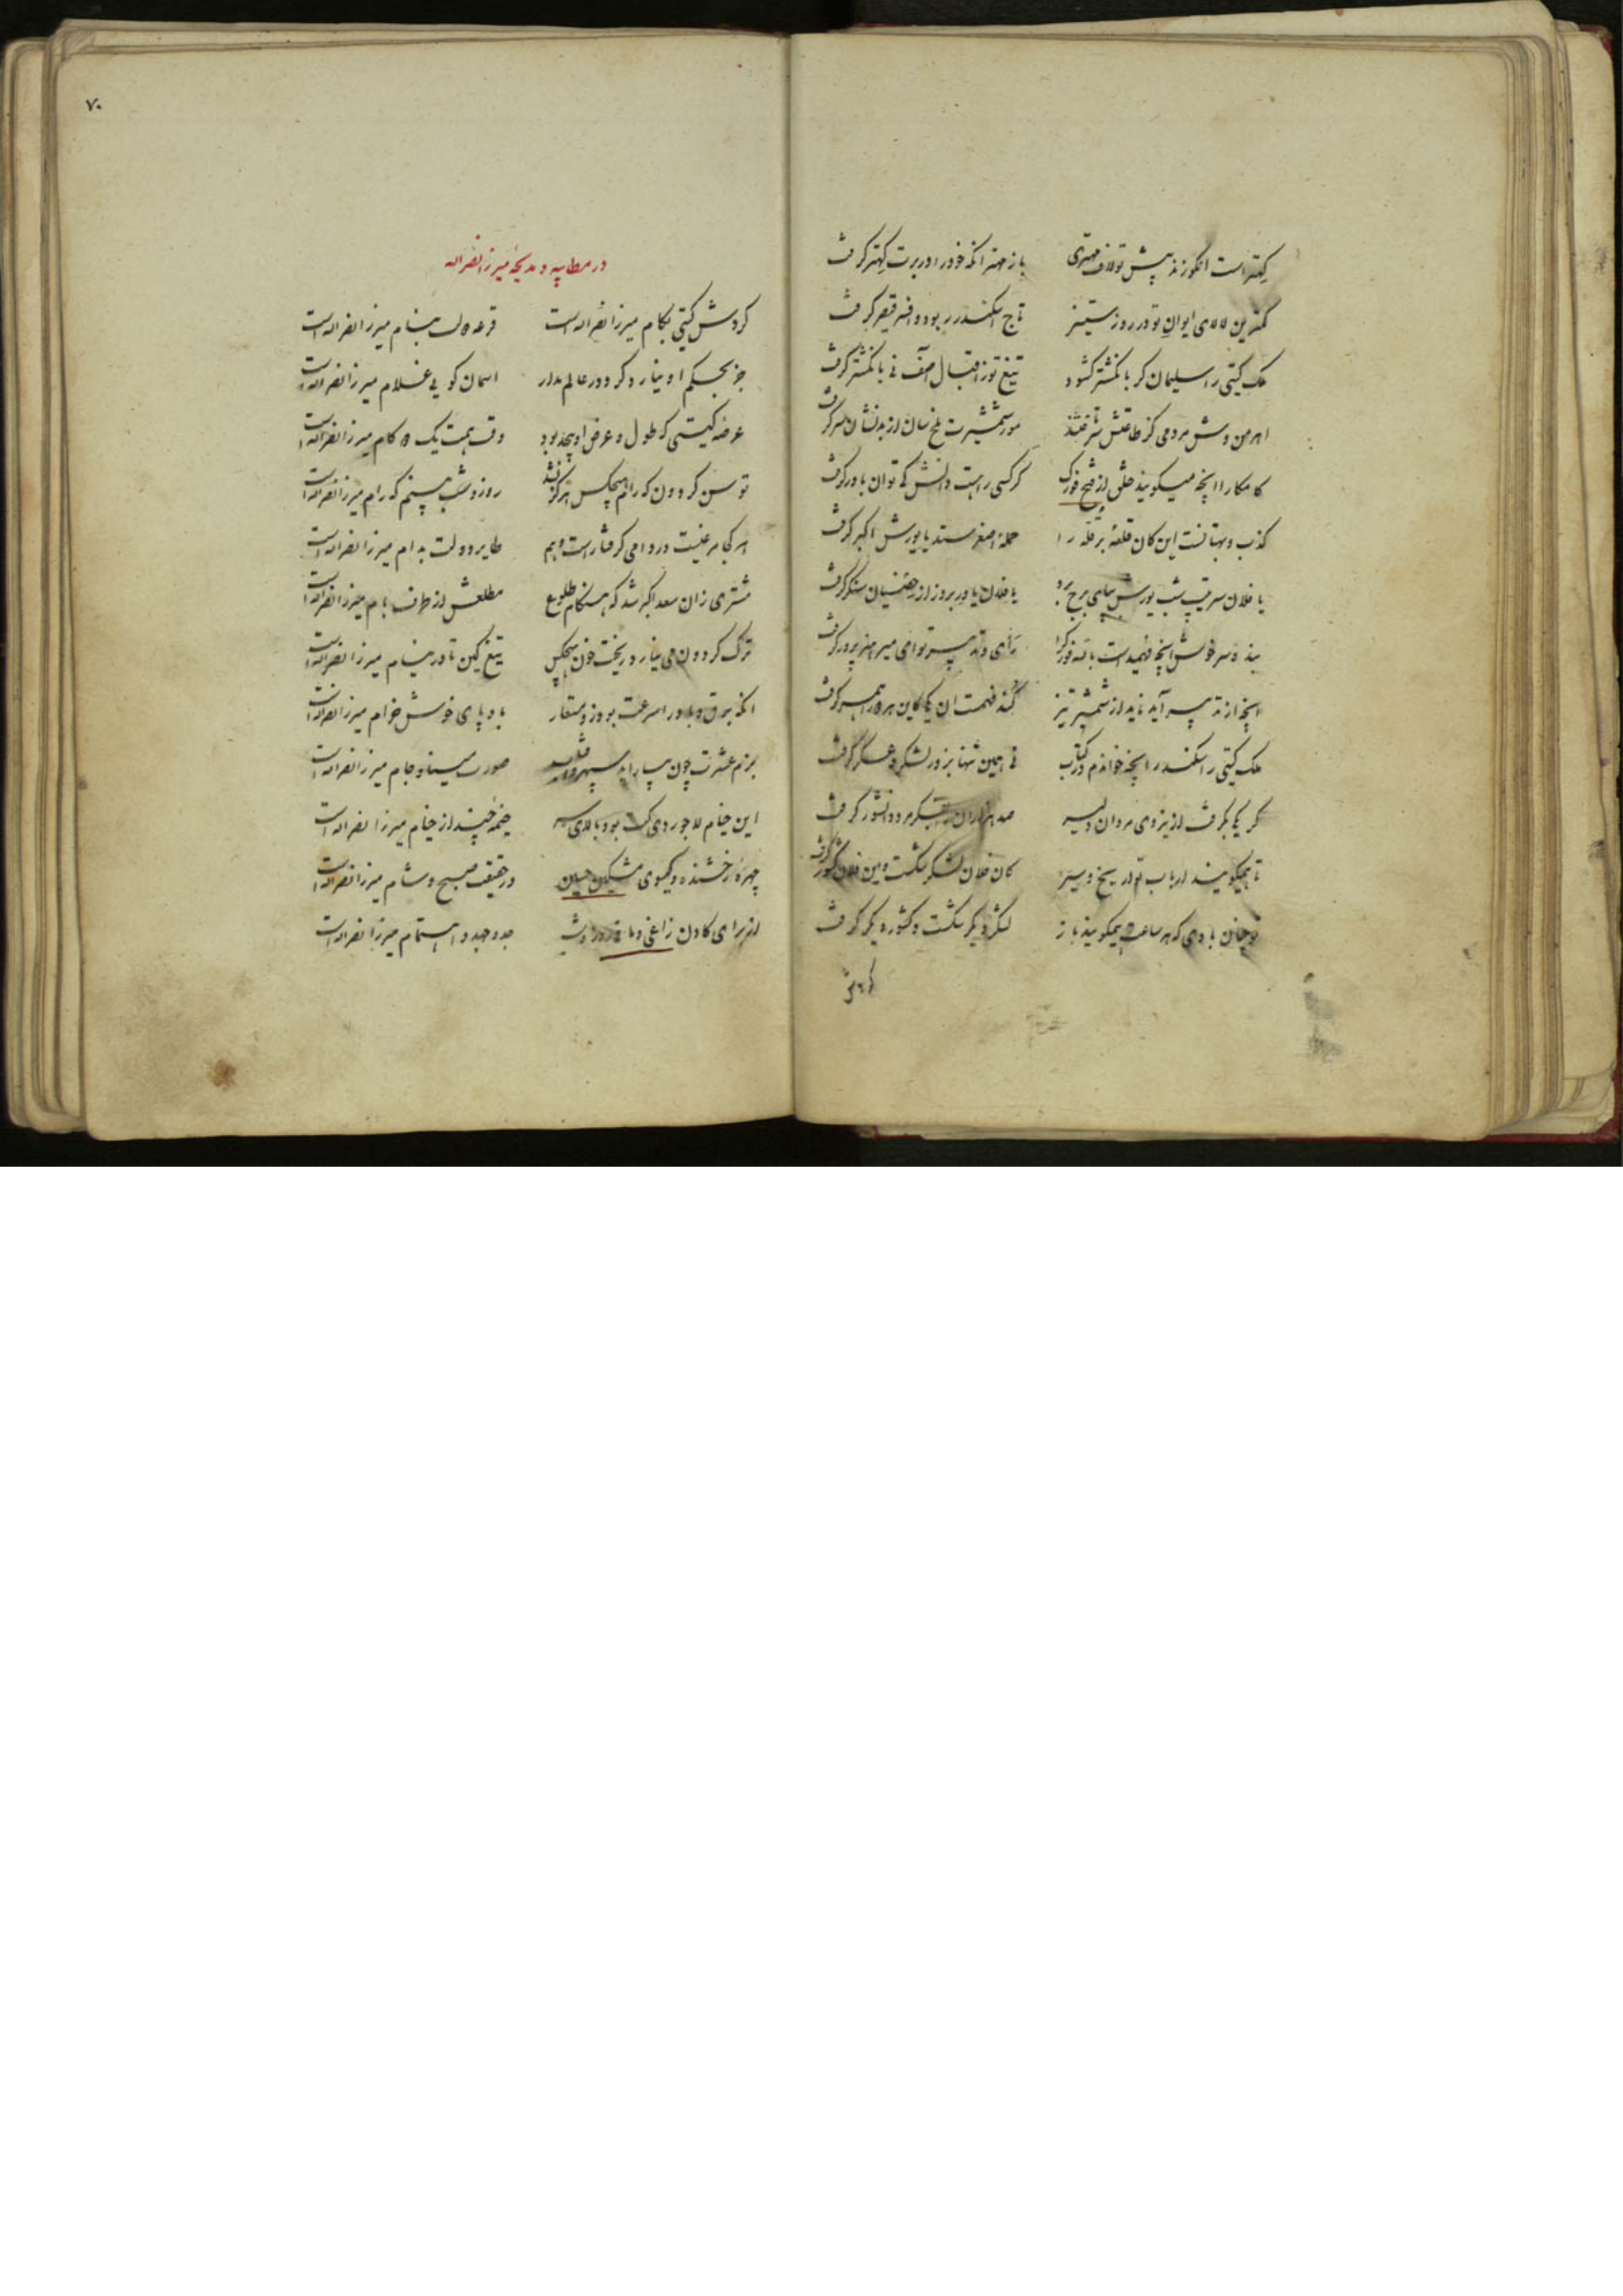 کهتر است انکو زند پیش تو لاف مهتری باز مهتر انکه خود را در برت کهتر گرفت
کمترین لالای ایوان تو در روز ستیز تاج اسکندر ربود و افسر قیصر گرفت
ملک کیتی را سلیمان کر بانکشتر کشود تیغ تو ز اقبال آصف نی بانکشتر گرفت
اهرمن وش مردمی کز طاعتش سر تافتند مور شمشیرت ملخ سان از بدنشان سر گرفت
کامکارا اینچه میکویند خلق از فتح فورک کر کسی را هست دانش کی توان باور گرفت
کذب و بهتانست این کان قلعه بر قله را حمله اصغر ستد یا یورش اکبر گرفت
یا فلان سرتیپ شب یورش بپای برج برد یا فلان یاور بروز از خصمشان سنکر گرفت
بنده سرخوش اینچه فهمیدست بالله فورک را رای و تدبیر تو ای میر هنرپرور گرفت
اینچه از تدبیر آید ناید از شمشیر تیز کند فهمست ان که کاین هر دو را همسر گرفت
ملک کیتی را سکندر اینچه خواندم در کتاب نی همین تنها بزور لشکر و عسکر گرفت
کر یکی بکرفت از نیروی مردان دلیر صد هزاران را بتدبیر مرد دانشور گرفت
تا همیکویند ارباب تواریخ و سیر کان فلان لشکر شکست وین فلان کشور گرفت
تو چنان بادی که هر ساعت همیکویند باز لشکر دیکر شکست و کشور دیکر گرفت
کردش
۷۰
در مطایبه و مدیحه میرزا نصرالله
کردش کیتی بکام میرزا نصرالله است قرعه دولت بنام میرزا نصرالله است
جز بحکم او نیارد کرد دور عالم مدار اسمان کویی غلام میرزا نصرالله است
عرصه کیتی که طول و عرض او بیحد بود وقت همت یک دو کام میرزا نصرالله است
توسن کردون که رام هیچکس هرکز نشد روز و شب بینم که رام میرزا نصرالله است
هر کجا مرغیست در دامی کرفتار است و هم طایر دولت بدام میرزا نصرالله است
مشتری زان سعد اکبر شد که هنکام طلوع مطلعش از طرف بام میرزا نصرالله است
ترک کردون می نیارد ریخت خون هیچکس تیغ کین تا در نیام میرزا نصرالله است
انکه برق و باد را سرعت بود زو مستعار بادپای خوش خرام میرزا نصرالله است
بزم عشرت چون بیاراید سپهر و افتاب صورت مینا و جام میرزا نصرالله است
این خیام لاجوردی کت بود بالای سر خیمه چند از خیام میرزا نصرالله است
چهره رخشنده و کیسوی مشکین حسین در حقیقت صبح و شام میرزا نصرالله است
از برای کادن زاغی و ما در روز و شب جد و جهد و اهتمام میرزا نصرالله است